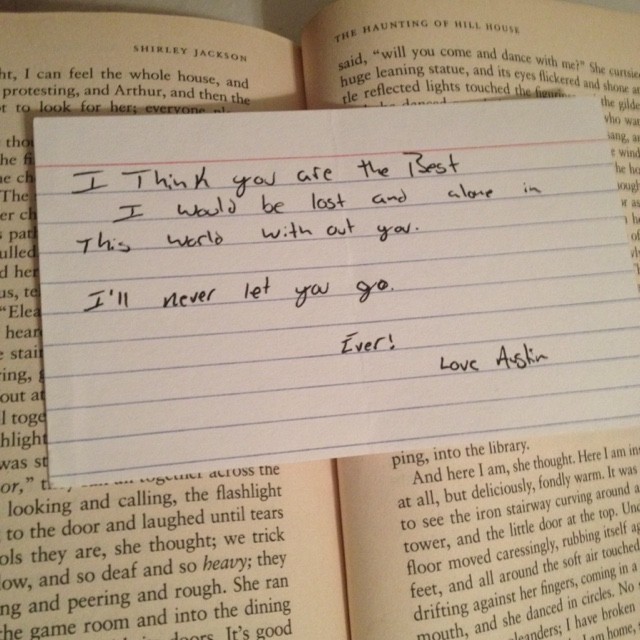 SHIRLEY JACKSON
ht, I can feel the whole house, and
protesting, and Arthur, and then the
to look for her; everyone
THE HAUNTING OF HILL HOUSE
said, "will you come and dance with me?" She
huge leaning statue, and its eyes flickered and shone
tle reflected lights touched the
the
I Think you are the Best
I would be lost and alone in
This world with out you.
I'll never let you go.
Ever!
Love Austin
together across the
looking and calling, the flashlight
to the door and laughed until tears
ols they are, she thought; we trick
low, and so deaf and so heavy; they
ng and peering and rough. She ran
the game room and into the dining
It's good
ping, into the library.
And here I am, she thought. Here I am
at all, but deliciously, fondly warm. It was
to see the iron stairway curving around a
tower, and the little door at the top.
floor moved caressingly, rubbing itself
feet, and all around the soft air touched
drifting against her fingers, coming in a
mouth, and she danced in circles. No
I have broken